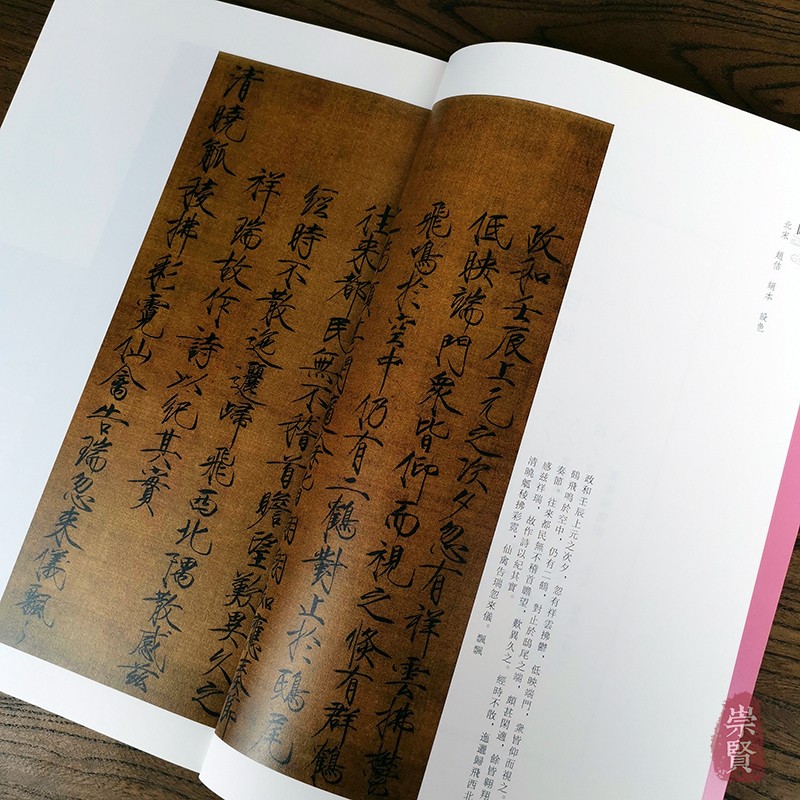 北宋 趙佶 絹本 設色
政和壬辰上元之次夕，忽有祥雲拂鬱，低映端門，衆皆仰而視之。
鶴飛鳴於空中，仍有二鶴，對止於鴟尾之端，頗甚閑適，餘皆翱翔
奏節。往來都民無不稽首瞻望，歎異久之。經時不散，迤邐歸飛西北
感茲祥瑞，故作詩以紀其實。
清曉觚稜拂彩霓，仙禽告瑞忽來儀。飄飄
政和壬辰上元之次夕忽有祥雲拂鬱
低映端門衆皆仰而視之倏有群鶴
飛鳴於空中仍有二鶴對止於鴟尾
如應奏節
往來都民無不稽首瞻望歎異久之
經時不散迤邐歸飛西北隅散感茲
祥瑞故作詩以紀其實
清曉觚稜拂彩霓仙禽告瑞忽來儀飄〻
崇賢